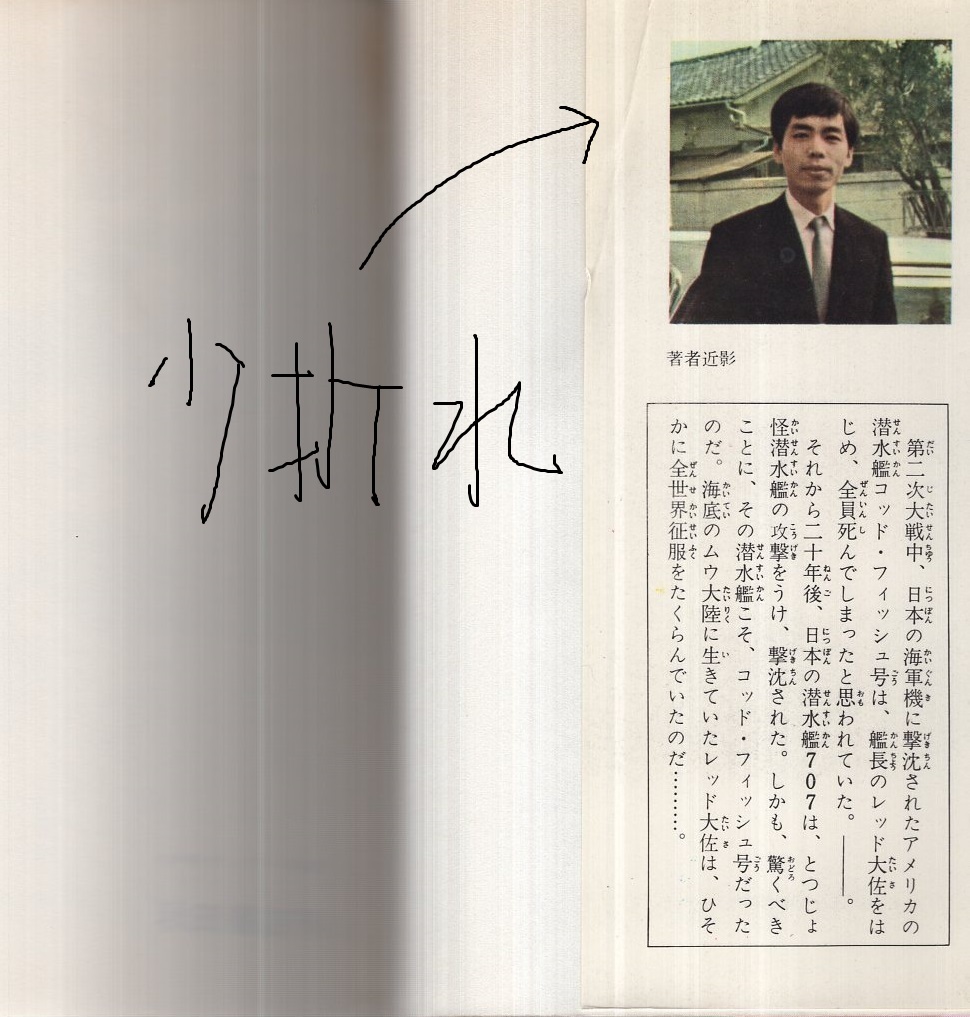 少折れ
著者近影
第二次大戦中、日本の海軍機に撃沈されたアメリカの
潜水艦コッド・フィッシュ号は、艦長のレッド大佐をは
じめ、全員死んでしまったと思われていた。――。
それから二十年後、日本の潜水艦707は、とつじょ
怪潜水艦の攻撃をうけ、撃沈された。しかも、驚くべき
ことに、その潜水艦こそ、コッド・フィッシュ号だった
のだ。海底のムウ大陸に生きていたレッド大佐は、ひそ
かに全世界征服をたくらんでいたのだ………。